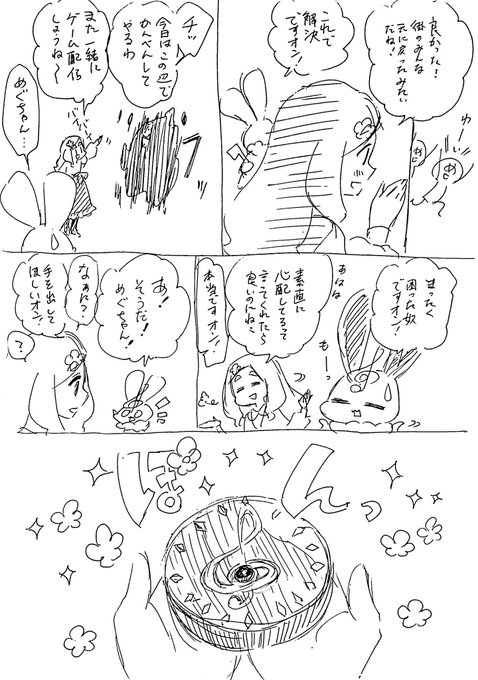 良かった!
街のみんな
元に戻ったみたい
だね!
ゆーい
これで
解決
ですオン!
チッ
今日はこの辺で
かんべんして
やるわ
また一緒に
ゲーム配信
しようね〜
バイバーイ
めぐちゃん…
まったく
困った奴
ですオン!
もーっ
あはは
素直に
心配してるって
言ってくれたら
良いのにね
本当ですオン!
あ!
そうだ!
めぐちゃん!
なぁに?
手を出して
ほしいオン!
?
ぽんっ